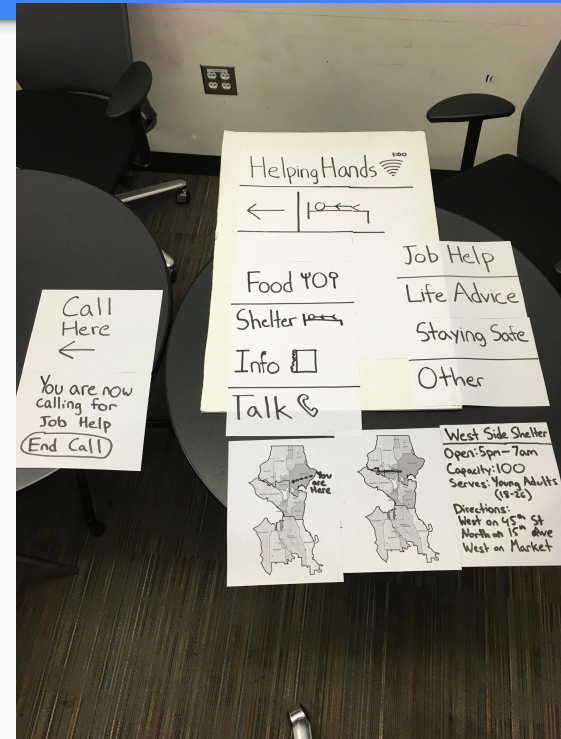 HelpingHands
1:00
Food
Shelter
Info
Talk
Job Help
Life Advice
Staying Safe
Other
Call
Here
You are now
calling for
Job Help
End Call
You
are
Here
West Side Shelter
Open: 5pm-7am
Capacity: 100
Serves: Young Adults
(18-25)
Directions:
West on 45th St
North on 15th Ave
West on Market